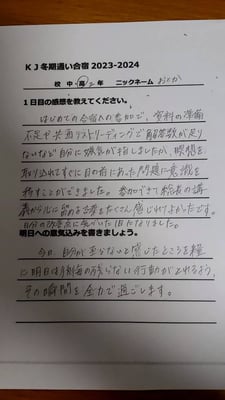 KJ冬期通い合宿 2023-2024
校 中・高 2年 ニックネーム おとか
1日目の感想を教えてください。
はじめての合宿への参加で、資料の準備
不足や共通リストリーディングで解答数が足り
ないなど自分に嫌気が手指しましたが、瞑想を
取り入れすぐに目の前にあった問題に意識を
移すことができました。参加できて校長の講
義から心に留める言葉をたくさん感じれてよかったです。
自分の弱点に気づいた1日になりました。
明日への意気込みを書きましょう。
今日、自分が至らないと感じたところを糧
に明日は後悔の残らない行動がとれるよう、
その瞬間を全力で過ごします。